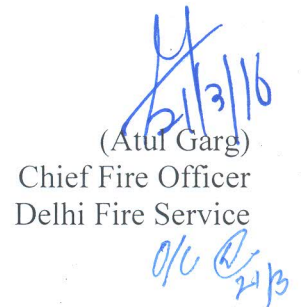 21/3/16
(Atul Garg)
Chief Fire Officer
Delhi Fire Service
O/C
21/3